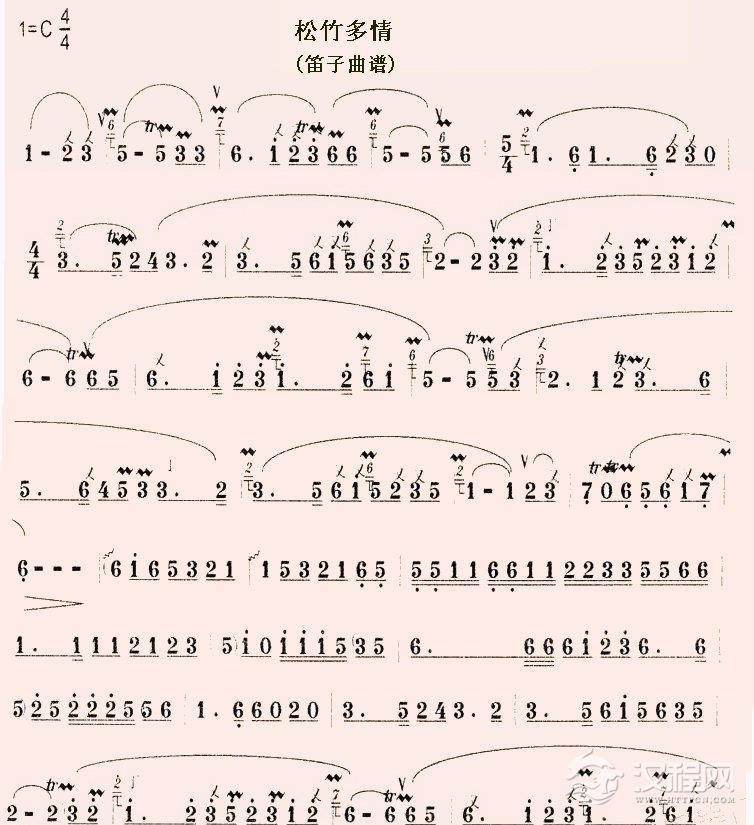 1=C 4/4
松竹多情
(笛子曲谱)
1 - 2 3 | 5 - 5 3 3 | 6 . i 2 3 6 6 | 5 - 5 5 6 | 5/4 1 . 6 1 . 6 2 3 0 |
4/4 3 . 5 2 4 3 . 2 | 3 . 5 6 1 5 6 3 5 | 2 - 2 3 2 | 1 . 2 3 5 2 3 1 2
6 - 6 6 5 | 6 . 1 2 3 1 . 2 6 1 | 5 - 5 5 3 | 2 . 1 2 3 . 6
5 . 6 4 5 3 3 . 2 | 3 . 5 6 1 5 2 3 5 | 1 - 1 2 3 | 7 0 6 5 6 1 7
6 - - - | 6 1 6 5 3 2 1 | 1 5 3 2 1 6 5 | 5 5 1 1 6 6 1 1 2 2 3 3 5 5 6 6
1 . 1 1 1 2 1 2 3 | 5 1 0 1 1 1 5 3 5 | 6 . 6 6 6 1 2 3 6 . 6
5 2 5 2 2 2 5 5 6 | 1 . 6 6 0 2 0 | 3 . 5 2 4 3 . 2 | 3 . 5 6 1 5 6 3 5
2 - 2 3 2 | 1 . 2 3 5 2 3 1 2 | 6 - 6 6 5 | 6 . 1 2 3 1 . 2 6 1
汉程网
WWW.HTTPCN.COM